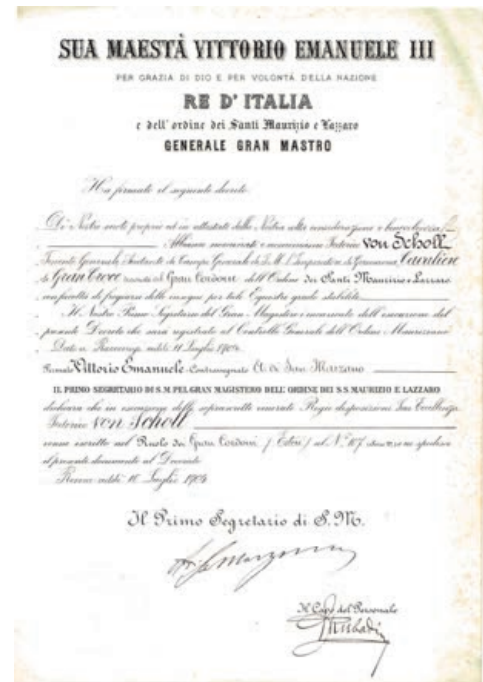 SUA MAESTÀ VITTORIO EMANUELE III
PER GRAZIA DI DIO E PER VOLONTÀ DELLA NAZIONE
RE D'ITALIA
e dell'ordine dei Santi Maurizio e Lazzaro
GENERALE GRAN MASTRO
Ha firmato il seguente decreto:
Di Nostro moto proprio ed in attestato della Nostra alta considerazione e benevolenza
Abbiamo nominato e nominiamo von Scholl
Tenente Generale Aiutante di Campo Generale di S. M. l'Imperatore di Germania Cavaliere
di Gran Croce decorato del Gran Cordone dell'Ordine dei Santi Maurizio e Lazzaro
con facoltà di fregiarsi delle insegne per tale Equestre grado stabilite
Il Nostro Primo Segretario del Gran Magistero è incaricato dell'esecuzione del
presente Decreto che sarà registrato al Controllo Generale dell'Ordine Mauriziano
Dato a addì 11 Luglio 1904
Firmato Vittorio Emanuele Contrassegnato di San Marzano
IL PRIMO SEGRETARIO DI S. M. PEL GRAN MAGISTERO DELL'ORDINE DEI S.S. MAURIZIO E LAZZARO
dichiara che in esecuzione delle soprascritte Regie disposizioni Sua Eccellenza
von Scholl
venne inscritto nel Ruolo dei Gran Cordoni (Esteri) al N.
il presente documento al Decorato
Roma addì 16 Luglio 1904
Il Primo Segretario di S. M.
Il Capo del Personale